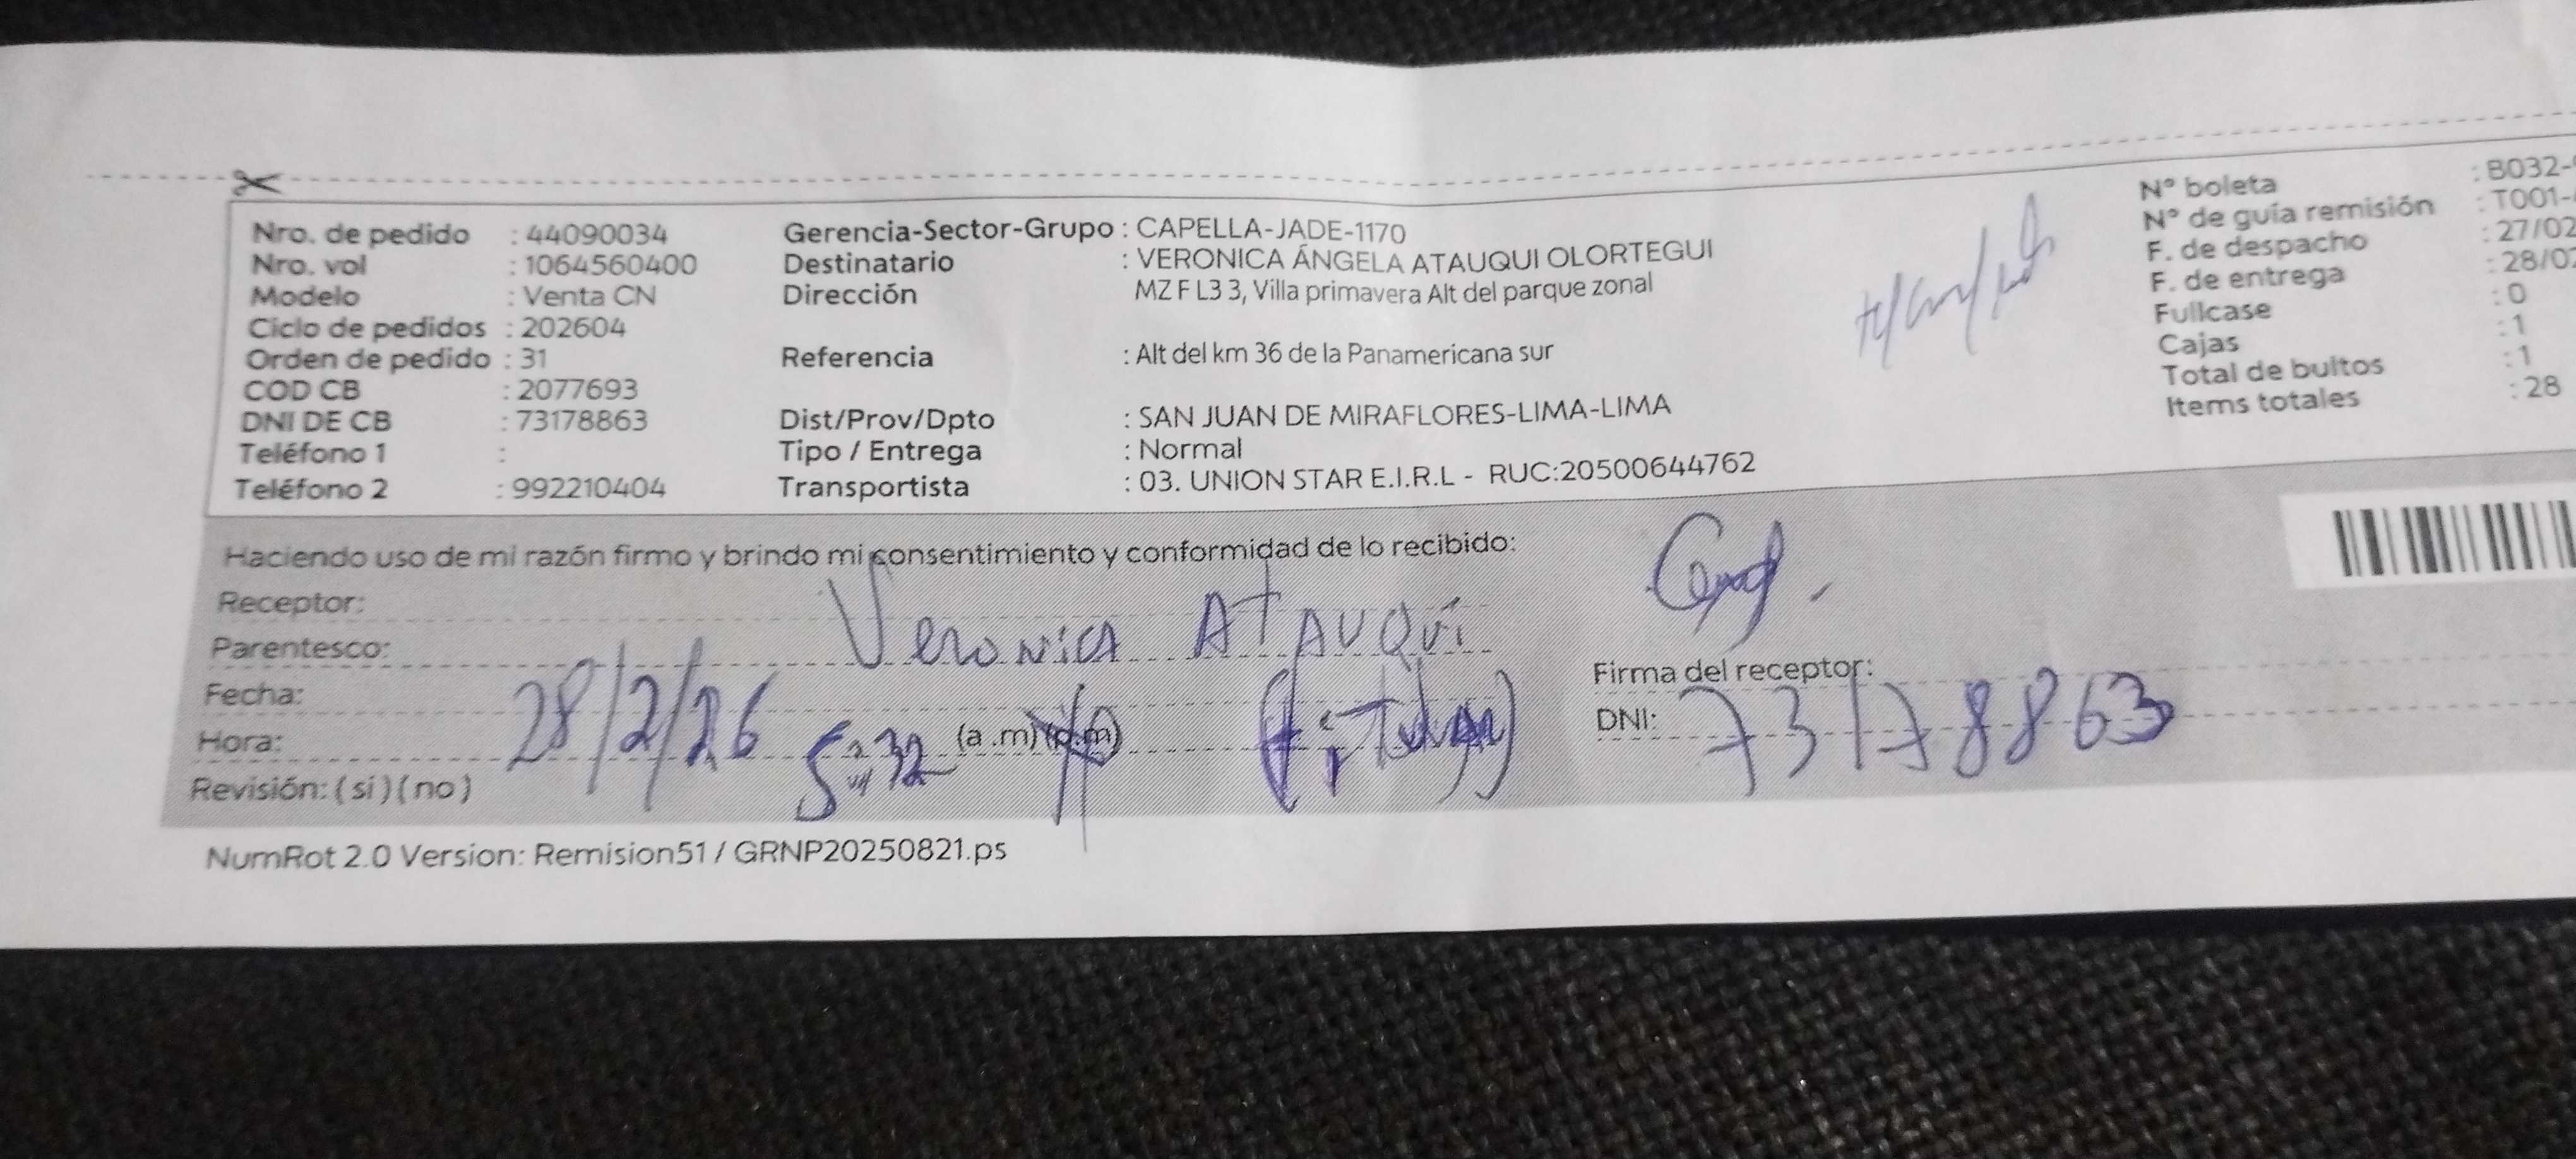 Nro. de pedido : 44090034
Nro. vol : 1064560400
Modelo : Venta CN
Ciclo de pedidos : 202604
Orden de pedido : 31
COD CB : 2077693
DNI DE CB : 73178863
Teléfono 1 :
Teléfono 2 : 992210404
Gerencia-Sector-Grupo : CAPELLA-JADE-1170
Destinatario : VERONICA ÁNGELA ATAUQUI OLORTEGUI
Dirección MZ F L3 3, Villa primavera Alt del parque zonal
Referencia : Alt del km 36 de la Panamericana sur
Dist/Prov/Dpto : SAN JUAN DE MIRAFLORES-LIMA-LIMA
Tipo / Entrega : Normal
Transportista : 03. UNION STAR E.I.R.L - RUC:20500644762
N° boleta : B032-
N° de guía remisión : T001-
F. de despacho : 27/02
F. de entrega : 28/02
Fullcase : 0
Cajas : 1
Total de bultos : 1
Items totales : 28
Haciendo uso de mi razón firmo y brindo mi consentimiento y conformidad de lo recibido:
Receptor: Veronica ATAUQUi
Parentesco:
Fecha: 28/2/26
Hora: 5:32 (a.m)(p.m)
Revisión: (si)(no)
Firma del receptor:
DNI: 73178863
NumRot 2.0 Version: Remision51 / GRNP20250821.ps